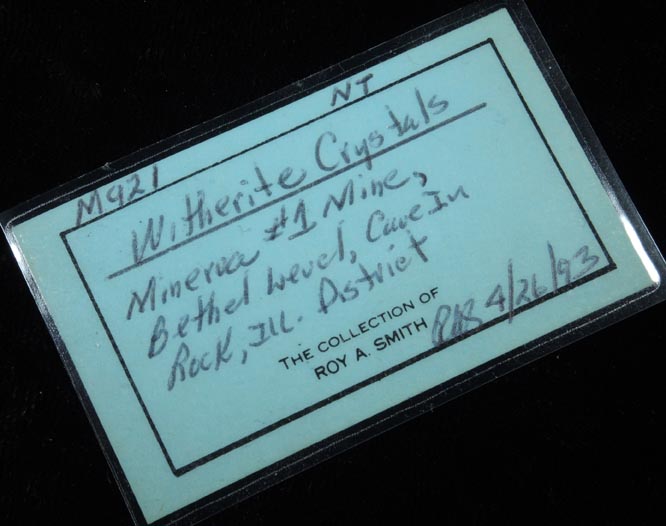 NT
M921
Witherite Crystals
Minerva #1 Mine,
Bethel Level, Cave In
Rock, Ill. District
THE COLLECTION OF
ROY A. SMITH
RAS 4/26/93